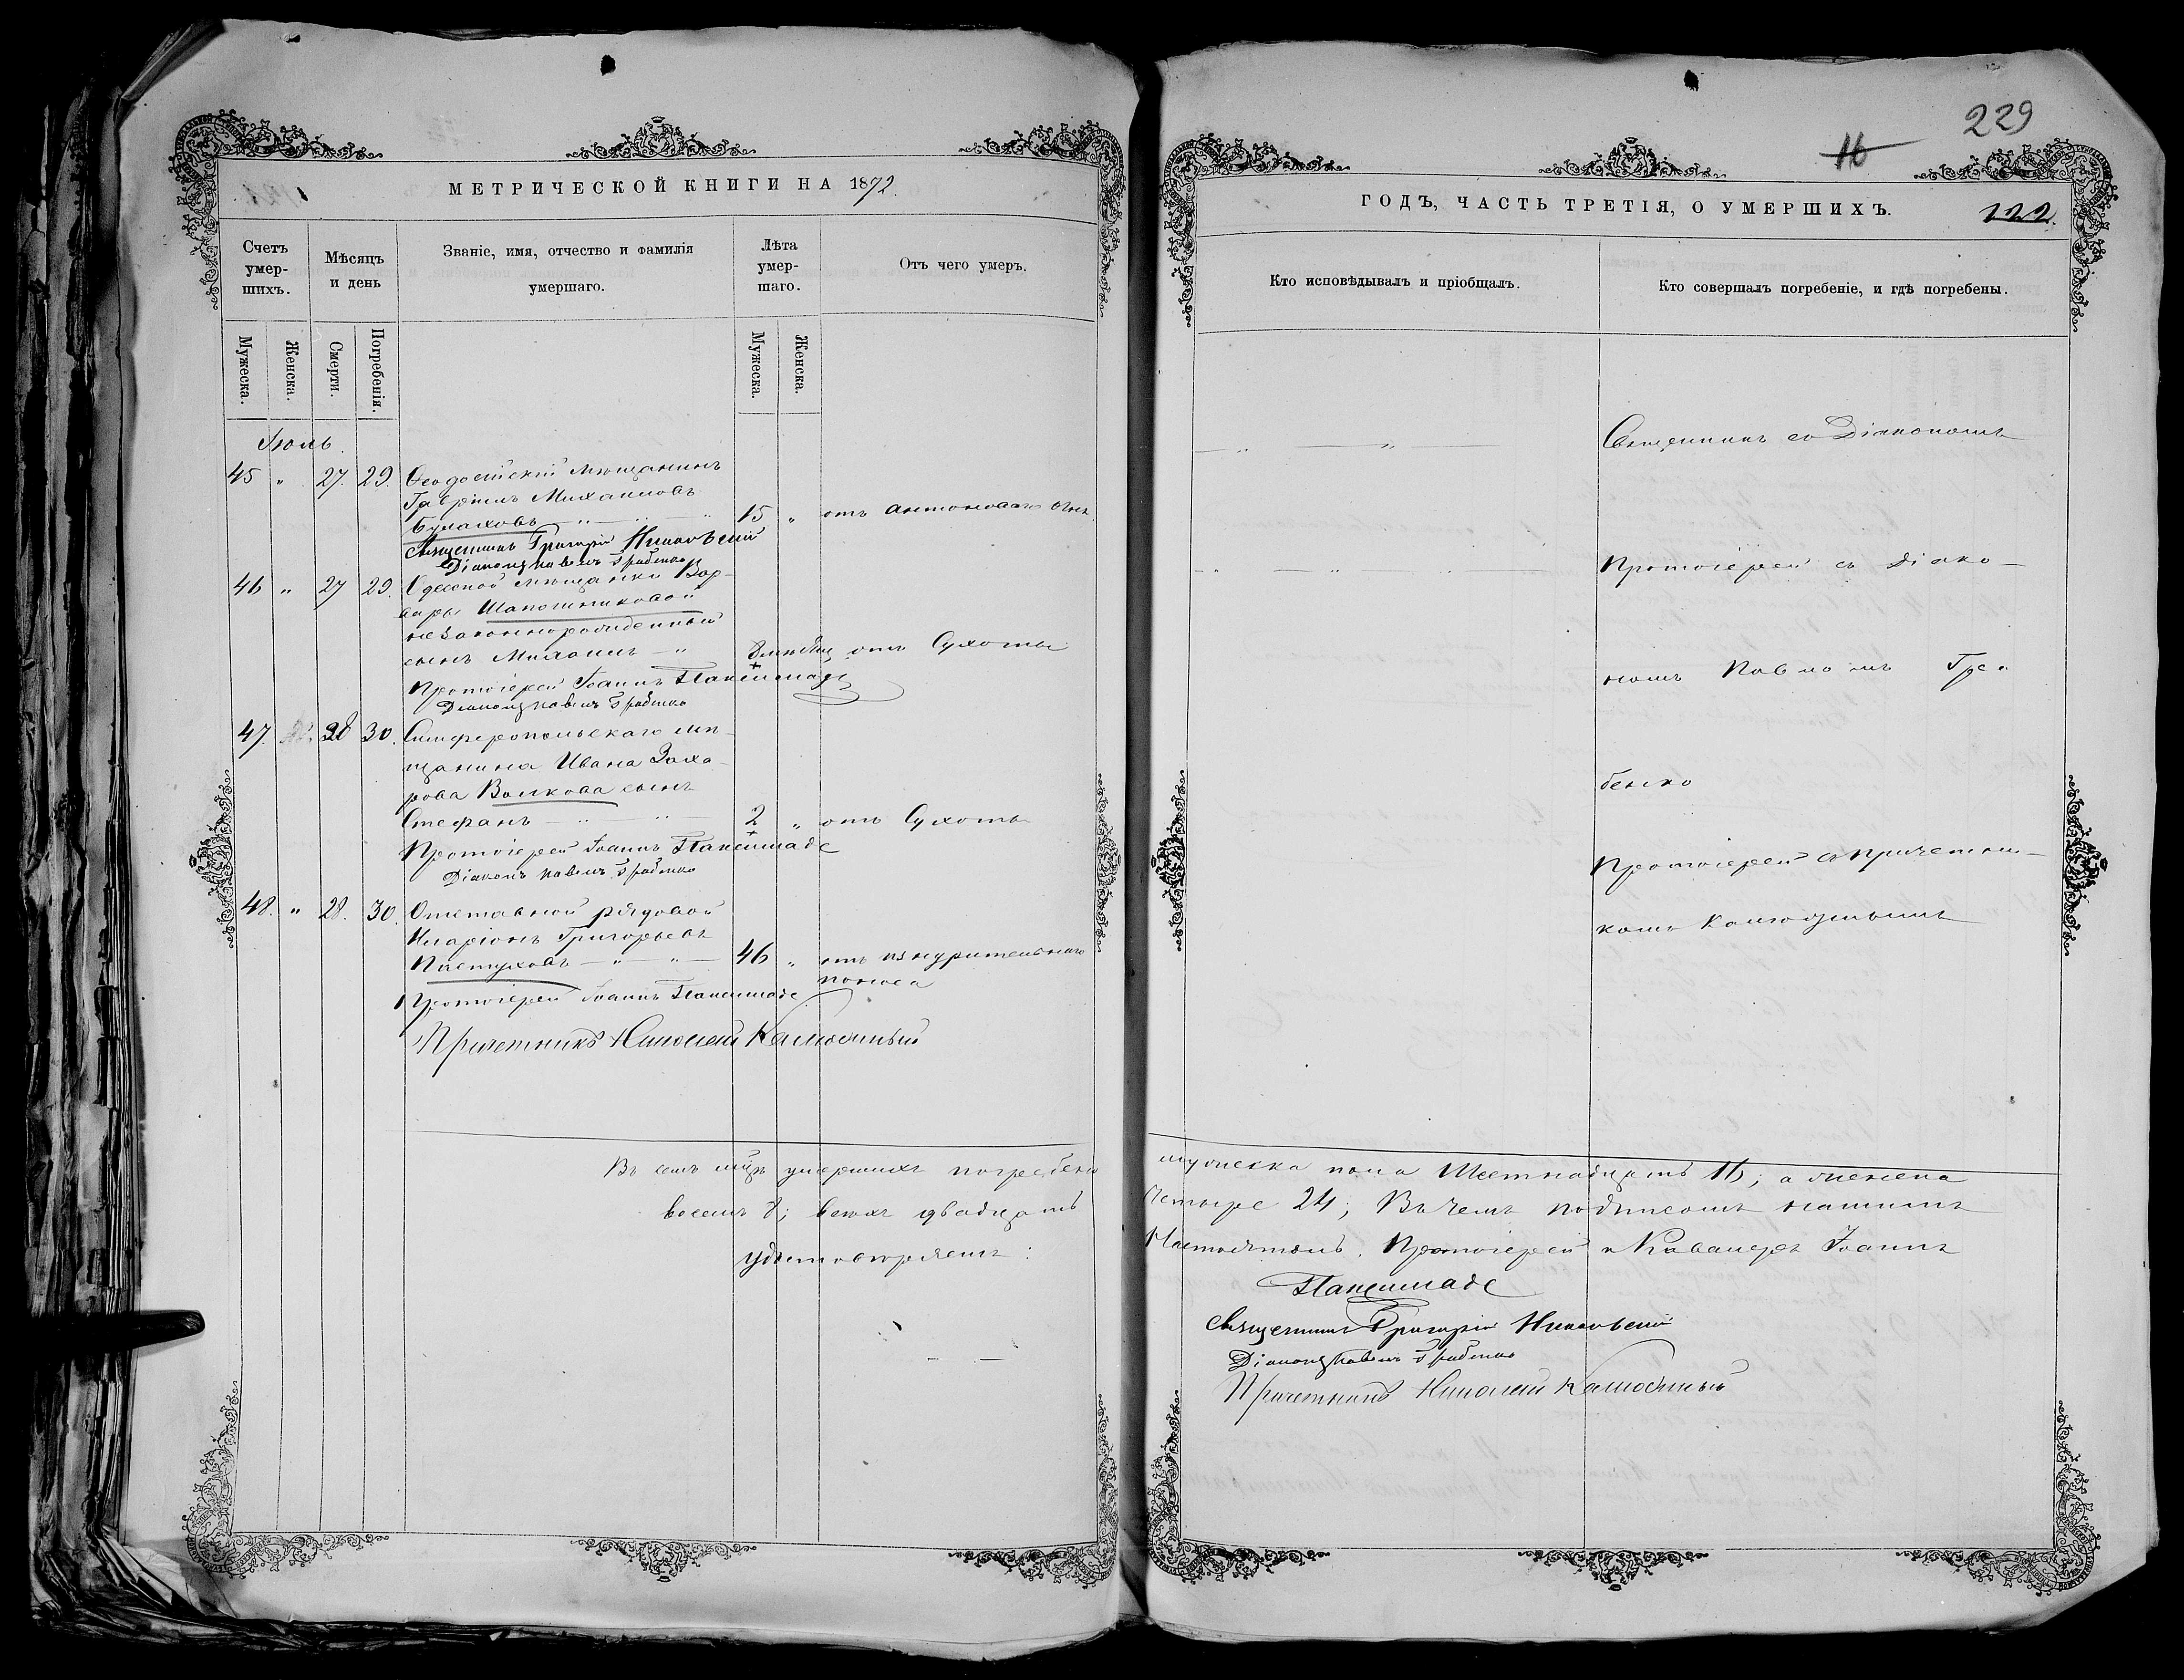 МЕТРИЧЕСКОЙ КНИГИ НА 1872.
Счетъ умер-шихъ.
Мѣсяцъ и день
Званіе, имя, отчество и фамилія умершаго.
Лѣта умер-шаго.
Отъ чего умеръ.
Мужеска.
Женска.
Смерти.
Погребенія.
Мужеска.
Женска.
Іюль.
45 " 27. 29. Ѳеодосійскій мѣщанинъ
Гавріилъ Михаиловъ
Булаховъ — " — " 15 " отъ антонова огня.
Священникъ Григорій
Діаконъ Павелъ Грабенко
46 " 27 29. Одесской мѣщанки Вар-
вары Шапошниковой
незаконнорожденный
сынъ Михаилъ — " отъ Сухоты
Протоіерей Іоаннъ Папешмаде
Діаконъ Павелъ Грабенко
47. 28 30. Симферопольскаго мѣ-
щанина Ивана Заха-
рова Волкова сынъ
Стефанъ — " — " — 2 " отъ Сухоты
Протоіерей Іоаннъ Папешмаде
Діаконъ Павелъ Грабенко
48. " 28. 30. Отставной рядовой
Иларіонъ Григорьевъ
Пастуховъ — " — " — 46 " отъ изнурительнаго
поноса
Протоіерей Іоаннъ Папешмаде
Причетникъ Николай
Въ семъ мцѣ умершихъ погребено
восемь 8; всѣхъ двадцать
удостовѣряемъ:
229
16
ГОДЪ, ЧАСТЬ ТРЕТІЯ, О УМЕРШИХЪ.
122.
Кто исповѣдывалъ и пріобщалъ.
Кто совершалъ погребеніе, и гдѣ погребены.
— " — " — Священникъ со Діакономъ
" — " — " — Протоіерей съ Діако-
номъ Павломъ Гра-
бенко
Протоіерей съ Причетни-
комъ
мужеска пола Шестнадцать 16; а женска
четыре 24; Въ чемъ подписомъ нашимъ
Настоятель. Протоіерей и Кавалеръ Іоаннъ
Папешмаде
Священникъ Григорій
Діаконъ Павелъ Грабенко
Причетникъ Николай